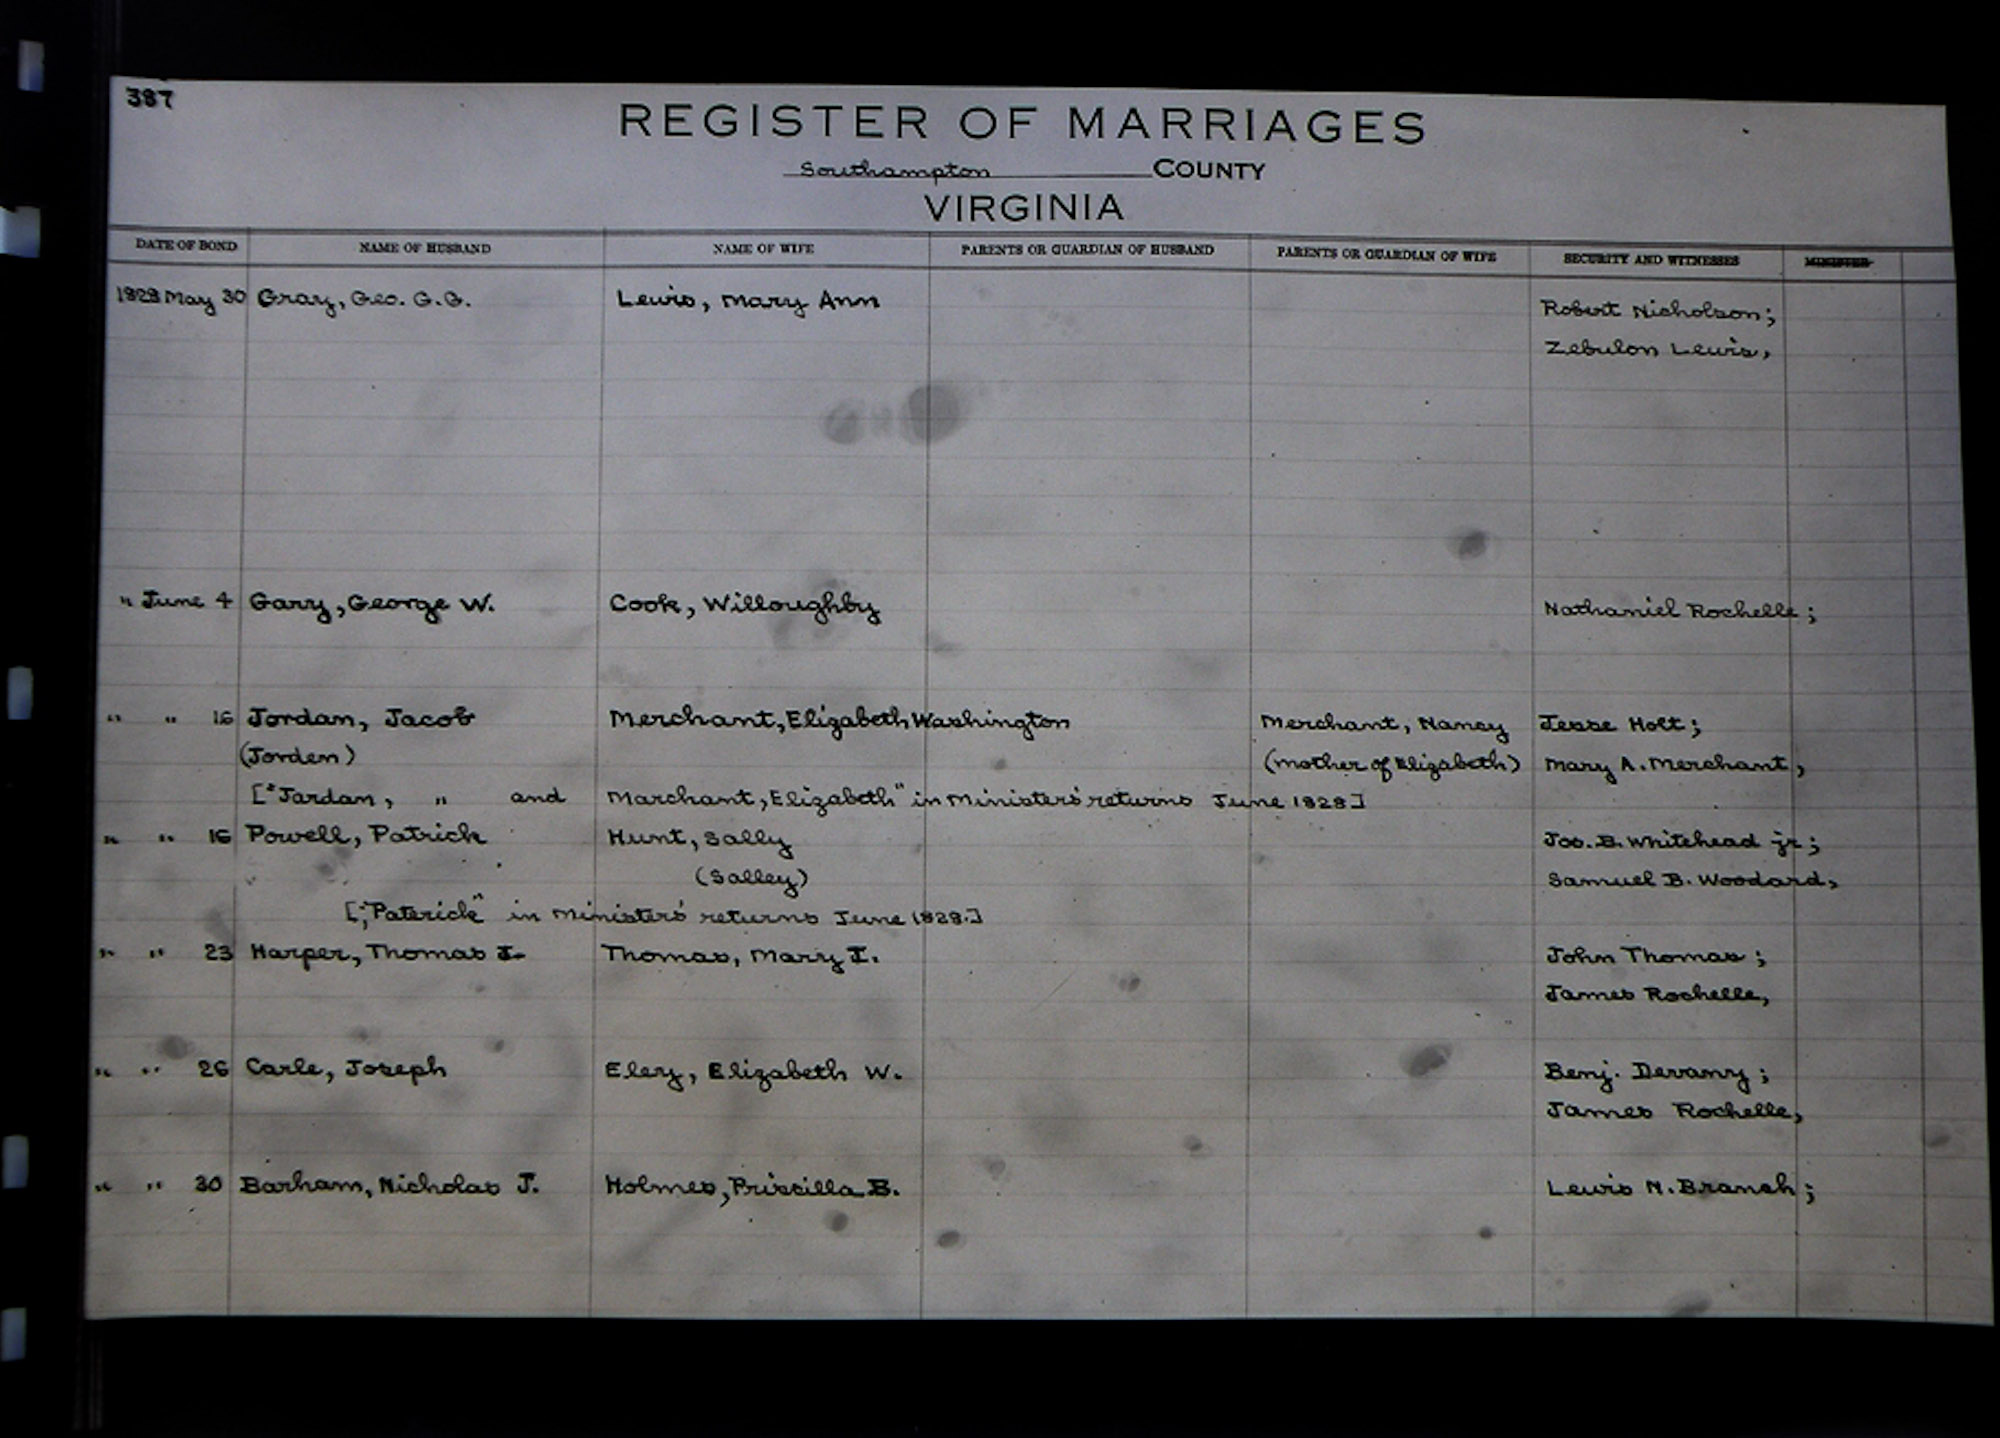 387
REGISTER OF MARRIAGES
Southampton COUNTY
VIRGINIA
DATE OF BOND NAME OF HUSBAND NAME OF WIFE PARENTS OR GUARDIAN OF HUSBAND PARENTS OR GUARDIAN OF WIFE SECURITY AND WITNESSES MINISTER
1828 May 30 Gray, Geo. G.G. Lewis, Mary Ann Robert Nicholson;
Zebulon Lewis,
" June 4 Gary, George W. Cook, Willoughby Nathaniel Rochelle;
" " 16 Jordan, Jacob Merchant, Elizabeth Washington Merchant, Nancy Jesse Holt;
(Jorden) (mother of Elizabeth) Mary A. Merchant,
["Jardan, " and Marchant, Elizabeth" in Ministers' returns June 1828]
" " 16 Powell, Patrick Hunt, Sally Jos. B. Whitehead jr;
(Salley) Samuel B. Woodard,
[;"Paterick" in Ministers' returns June 1828.]
" " 23 Harper, Thomas J. Thomas, Mary I. John Thomas;
James Rochelle,
" " 26 Carle, Joseph Elery, Elizabeth W. Benj. Devany;
James Rochelle,
" " 30 Barham, Nicholas J. Holmes, Priscilla B. Lewis N. Branch;